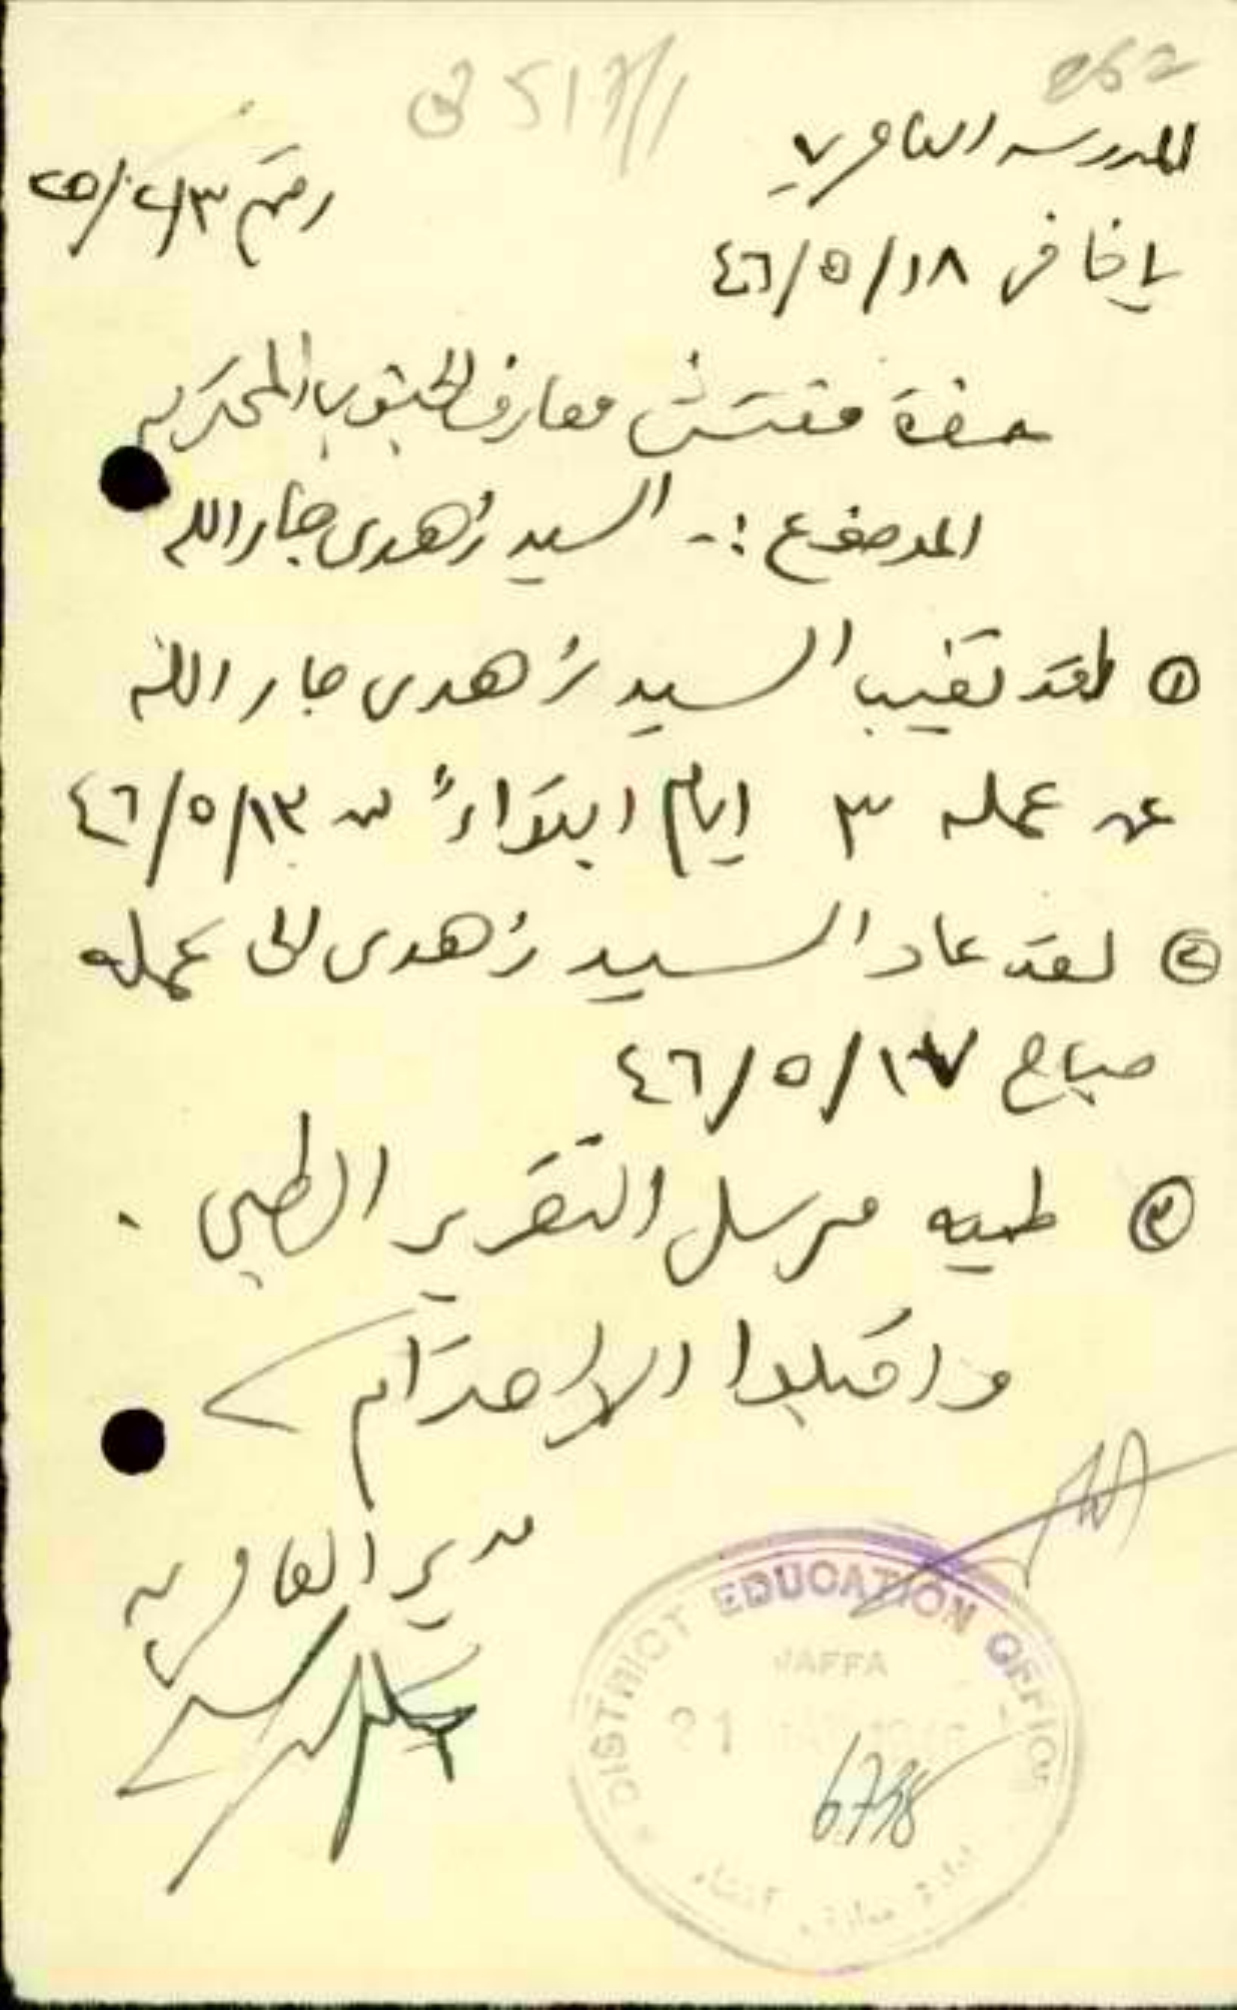 262
517/1
المدرسة العامرية
رقم ٢/٣/٢٥
يافا في ١٨/٥/٤٦
حضرة مفتش معارف الجنوب المحترم
الموضوع :- السيد زهدي جار الله
① لقد تغيب السيد زهدي جار الله
عن عمله ٣ ايام ابتداءً من ١٣/٥/٤٦
② لقد عاد السيد زهدي الى عمله
صباح ١٧/٥/٤٦
③ طيه مرسل التقرير الطبي .
واقبلوا الاحترام
مدير العامرية
DISTRICT EDUCATION OFFICE
JAFFA
21 MAY 1946
6738